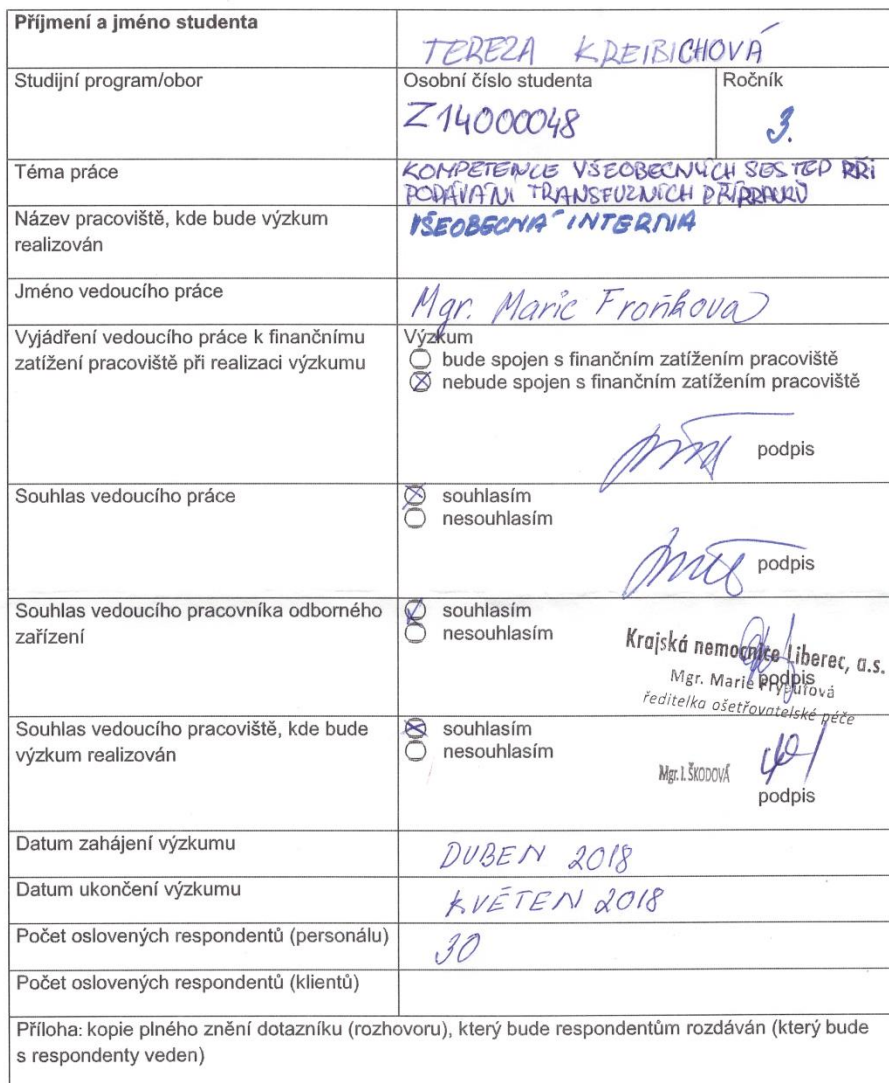 Příjmení a jméno studenta
TEREZA KREIBICHOVÁ
Studijní program/obor
Osobní číslo studenta
Z14000048
Ročník
3.
Téma práce
KOMPETENCE VŠEOBECNÝCH SESTER PŘI
PODÁVÁNÍ TRANSFUZNÍCH PŘÍPRAVKŮ
Název pracoviště, kde bude výzkum
realizován
VŠEOBECNÁ INTERNA
Jméno vedoucího práce
Mgr. Marie Froňková
Vyjádření vedoucího práce k finančnímu
zatížení pracoviště při realizaci výzkumu
Výzkum
bude spojen s finančním zatížením pracoviště
nebude spojen s finančním zatížením pracoviště
podpis
Souhlas vedoucího práce
souhlasím
nesouhlasím
podpis
Souhlas vedoucího pracovníka odborného
zařízení
souhlasím
nesouhlasím
Krajská nemocnice Liberec, a.s.
Mgr. Marie
podpis
ředitelka ošetřovatelské péče
Souhlas vedoucího pracoviště, kde bude
výzkum realizován
souhlasím
nesouhlasím
Mgr. I. ŠKODOVÁ
podpis
Datum zahájení výzkumu
DUBEN 2018
Datum ukončení výzkumu
KVĚTEN 2018
Počet oslovených respondentů (personálu)
30
Počet oslovených respondentů (klientů)
Příloha: kopie plného znění dotazníku (rozhovoru), který bude respondentům rozdáván (který bude
s respondenty veden)